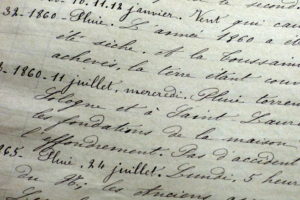 10.11.12 janvier. Vent qui
32-1860-Pluie. L'année 1860 a été
été sèche. A la Toussaint
achevés, la terre étant
3-1860-11 juillet, mercredi. Pluie torren
Sologne et à Saint Laur
les fondations de la maison
l'effondrement. Pas d'accident
1865-Pluie. 24 juillet. Lundi, 5 heur
du Roi, les anciens